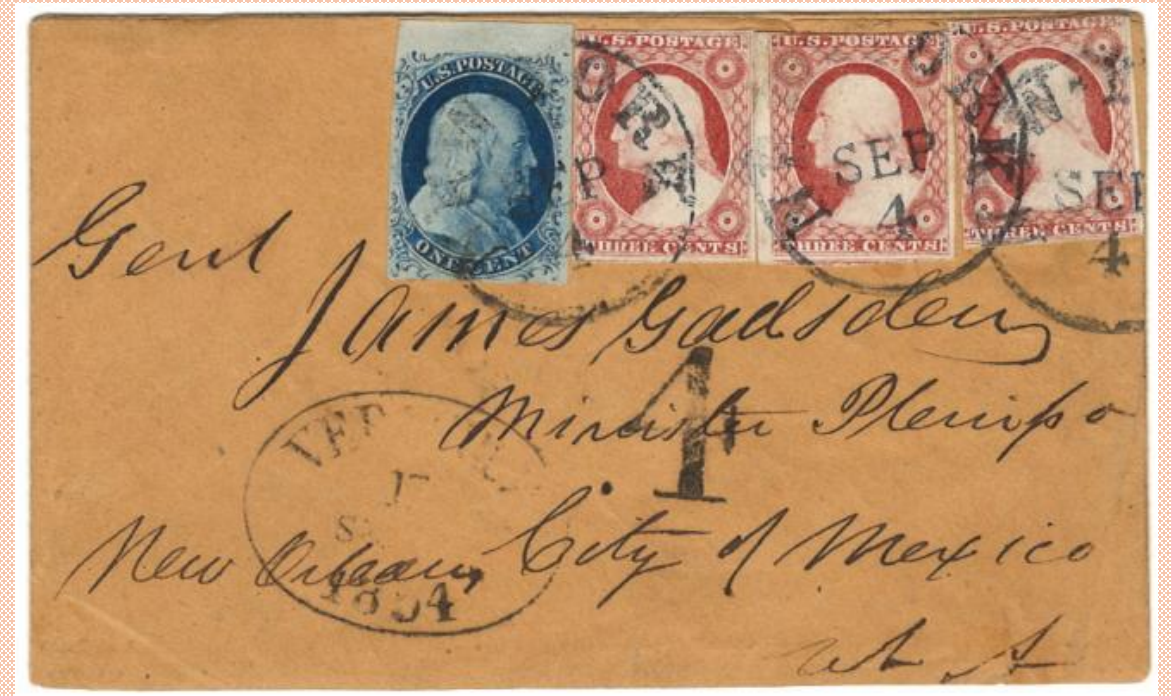 U.S. POSTAGE
ONE CENT
U.S. POSTAGE
THREE CENTS
U.S. POSTAGE
THREE CENTS
U.S. POSTAGE
THREE CENTS
SEP
4
SEP
4
Genl
James Gadsden
Minister Plenipo
City of Mexico
New Orleans
4
17
1854